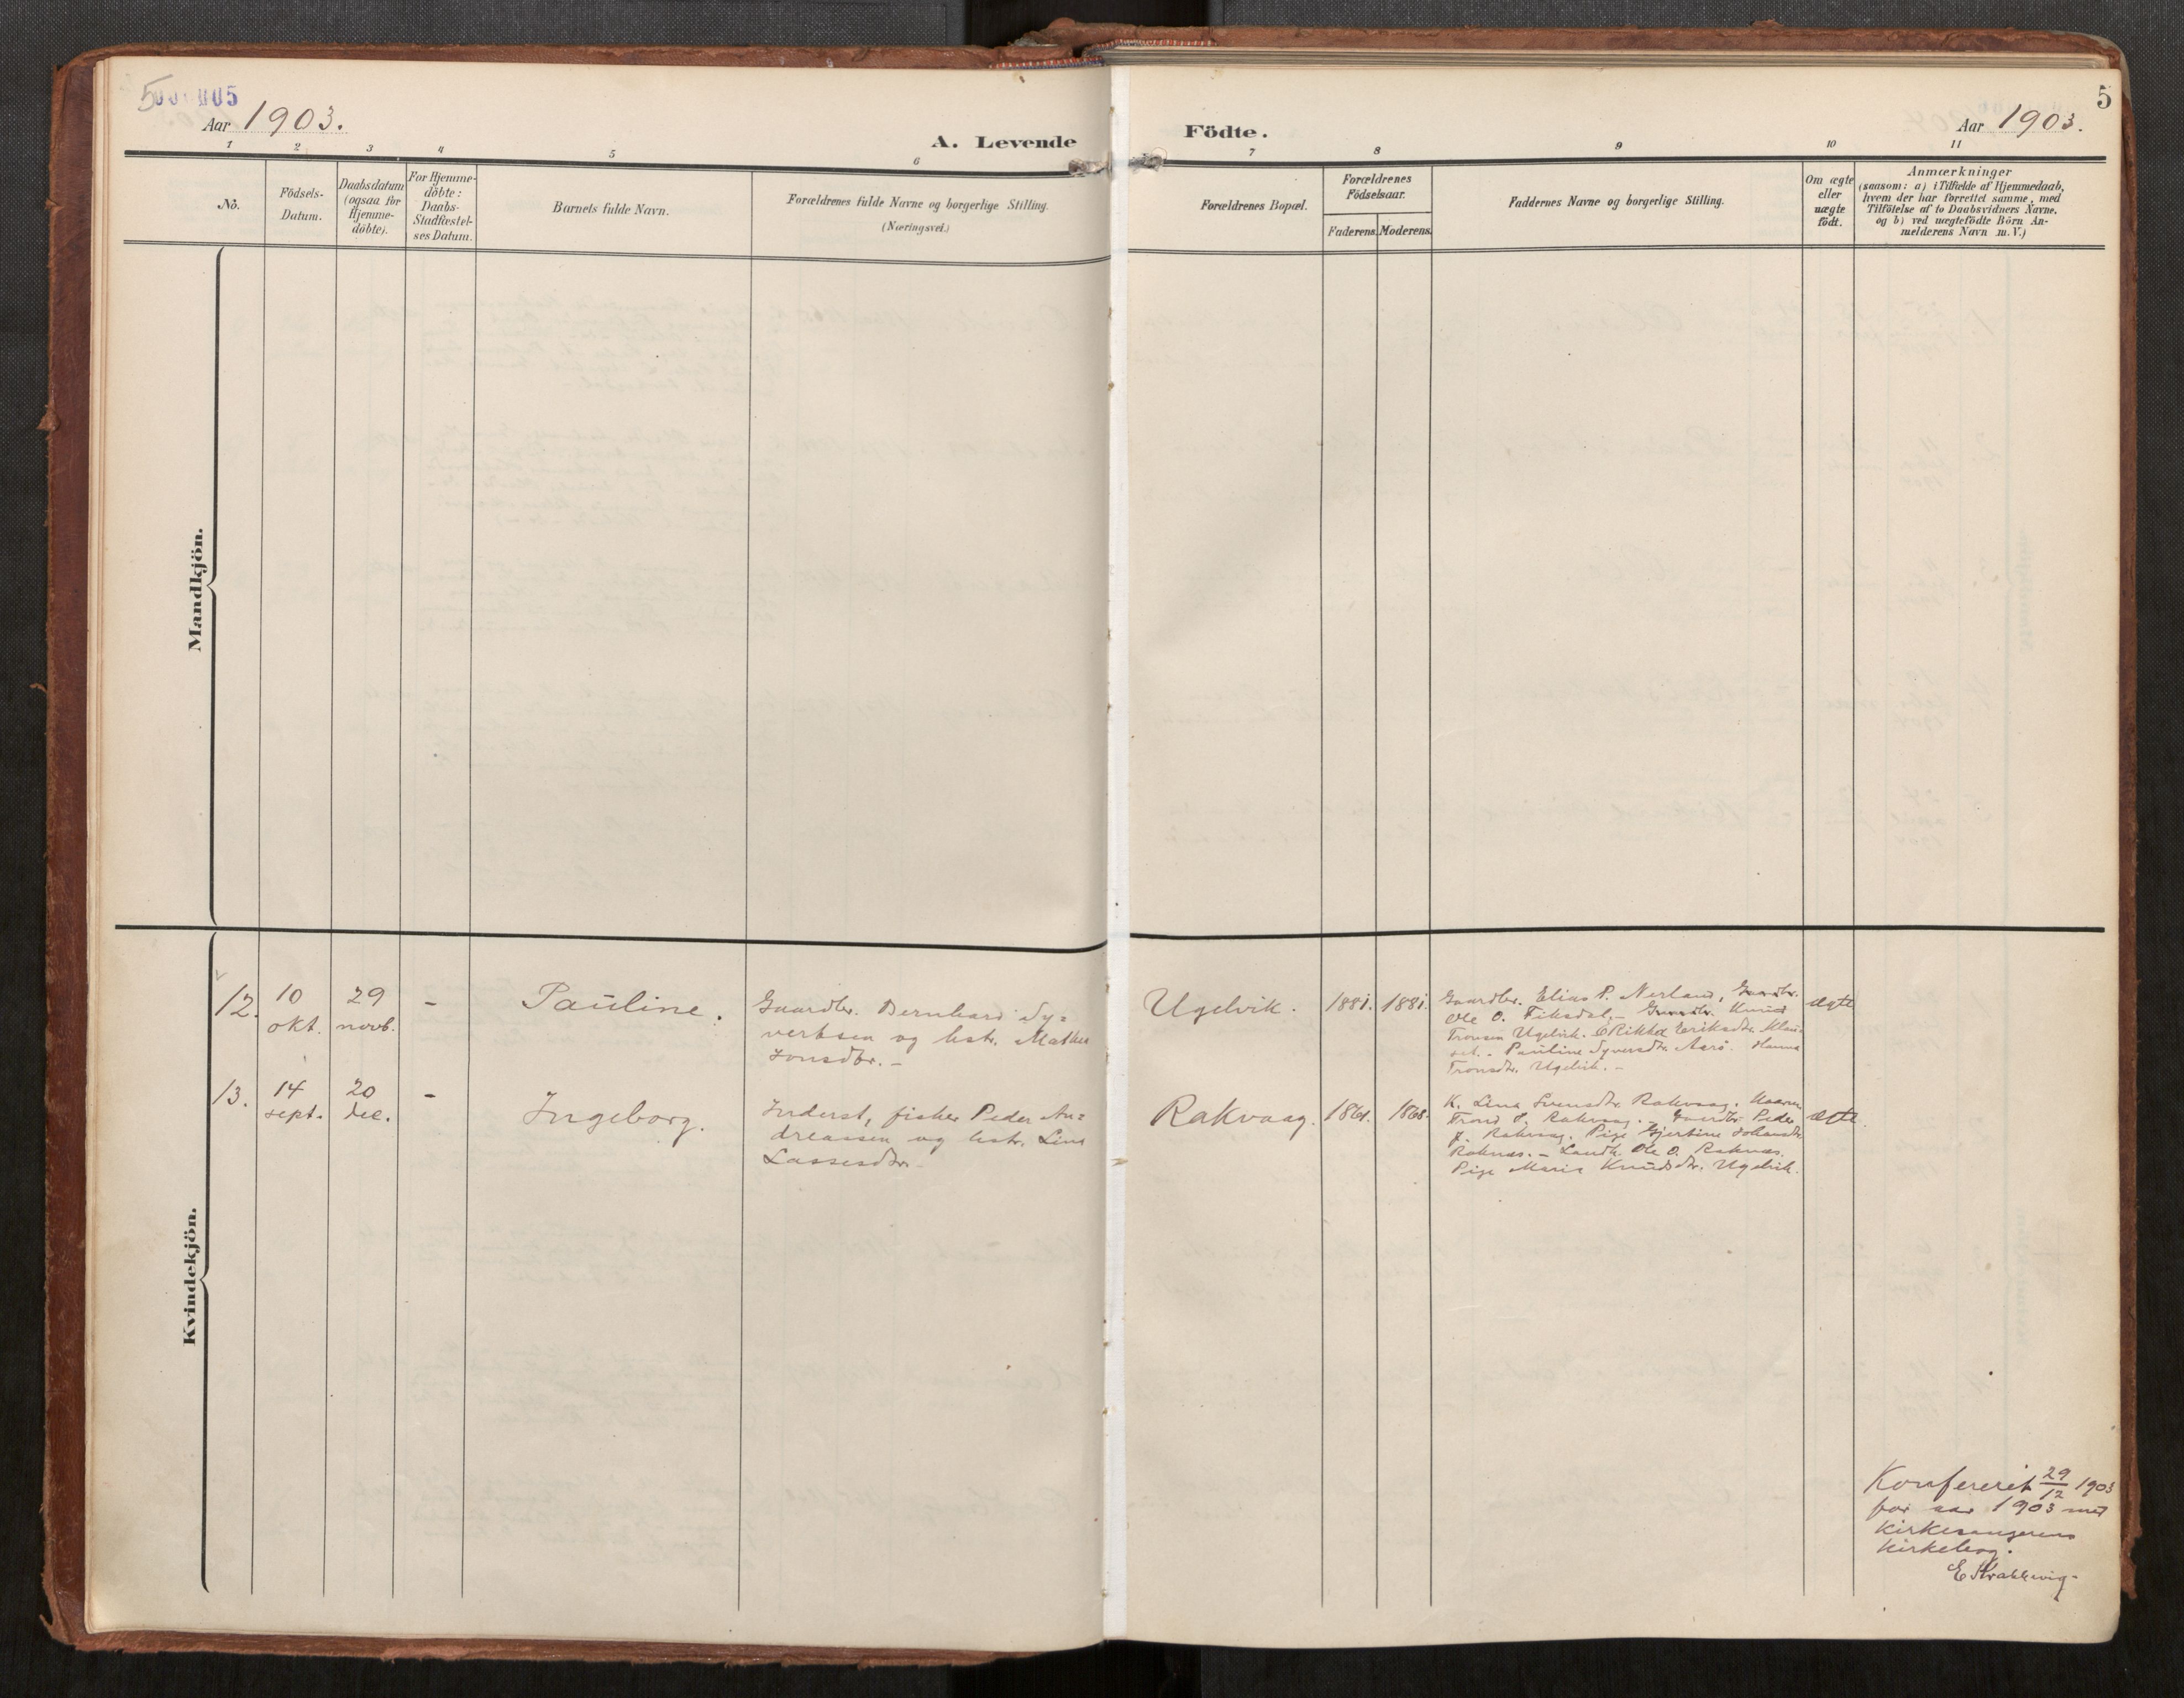 5
005
Aar 1903.
A. Levende
Födte.
Aar 1903.
5
1 2 3 4 5 6 7 8 9 10 11
No.
Födsels-
Datum.
Daabsdatum
(ogsaa for
Hjemme-
döbte).
For Hjemme-
döbte:
Daabs-
Stadfæstel-
ses Datum.
Barnets fulde Navn.
Forældrenes fulde Navne og borgerlige Stilling.
(Næringsvei.)
Forældrenes Bopæl.
Forældrenes
Födselsaar.
Faderens. Moderens.
Faddernes Navne og borgerlige Stilling.
Om ægte
eller
uægte
födt.
Anmærkninger
(saasom: a) i Tilfælde af Hjemmedaab,
hvem der har forrettet samme, med
Tilföielse af to Daabsvidners Navne.
og b) ved uægtefödte Börn An-
melderens Navn m. V.)
Mandkjön.
Kvindekjön.
12.
10
okt.
29
novb.
-
Pauline.
Gaardbr. Bernhard Sy=
vertsen og hstr. Mathea
Jonsdtr. -
Ugelvik.
1881.
1881.
Gaardbr. Elias P. Nerland, Gaardbr.
Ole O. Fiksdal, - Gaardbr. Knud
Tronsen Ugelvik. Rikka Eriksdtr.
Pauline Syversdtr. Aarö. Hanna
Tronsdtr. Ugelvik. -
ægte
13.
14
sept.
20
dec.
-
Ingeborg.
Inderst, fisker Peder An=
dreassen og hstr. Lina
Lassesdtr. -
Rakvaag.
1861.
1868.
K. Lina Svensdtr. Rakvaag.
Trond J. Rakvaag. - Gaardbr. Peder
J. Rakvaag. Pige Gjertine Johansdtr.
Raknæs. - Landh. Ole O. Raknæs.
Pige Marie Knudsdtr. Ugelvik.
ægte.
Konfereret 29/12 1903
for aar 1903 med
kirkesangerens
kirkebog.